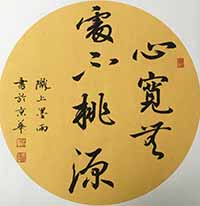 心寬無
處不桃源
隴上墨雨
書於京華